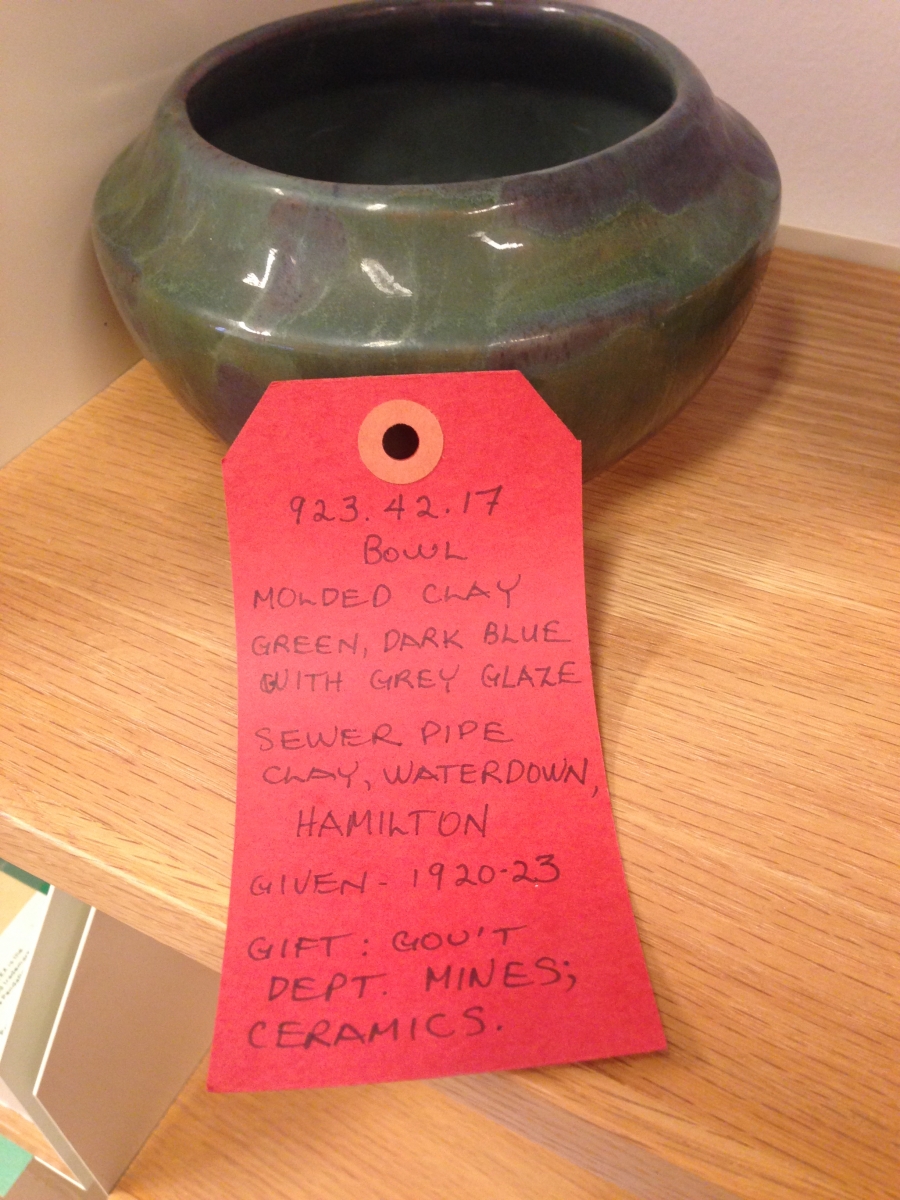 923.42.17
BOWL
MOLDED CLAY
GREEN, DARK BLUE
WITH GREY GLAZE
SEWER PIPE
CLAY, WATERDOWN,
HAMILTON
GIVEN - 1920-23
GIFT: GOV'T
DEPT. MINES;
CERAMICS.